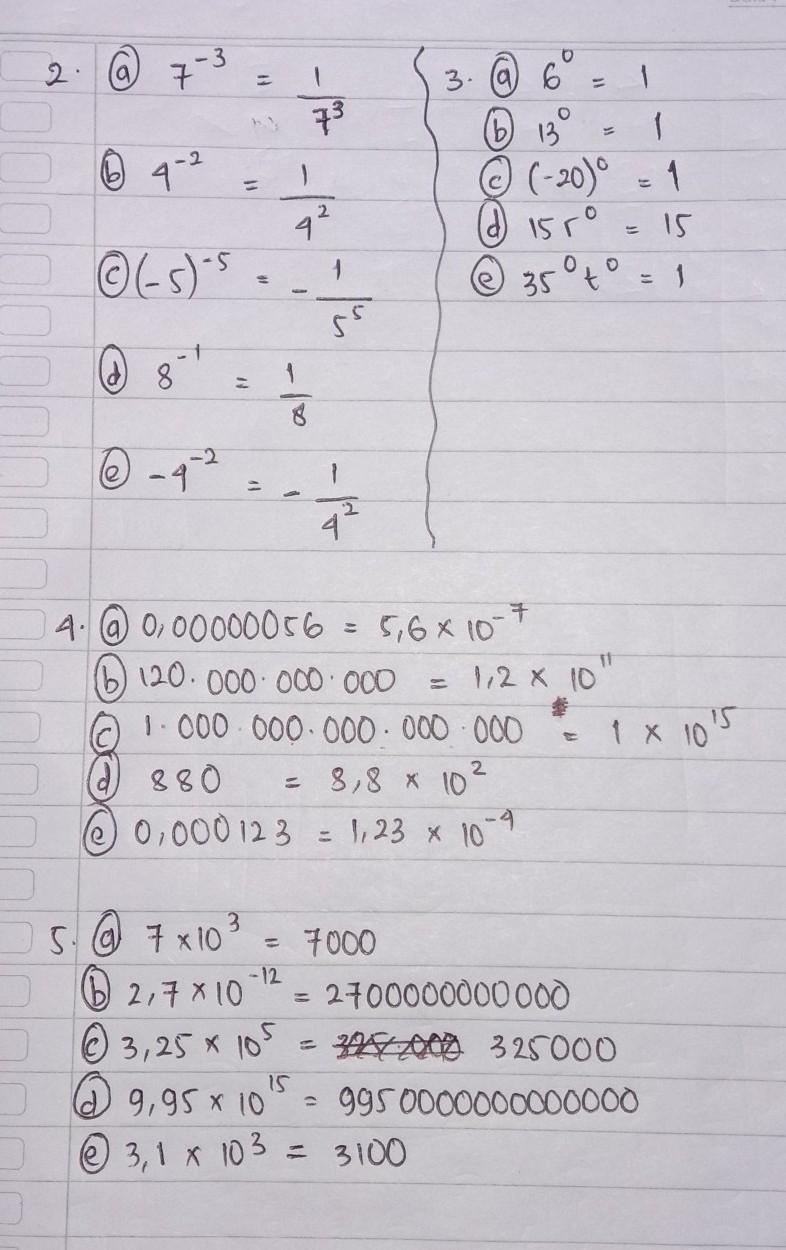 2. ⓐ 7⁻³ = 1/7³
ⓑ 4⁻² = 1/4²
ⓒ (-5)⁻⁵ = - 1/5⁵
ⓓ 8⁻¹ = 1/8
ⓔ -4⁻² = - 1/4²
3. ⓐ 6⁰ = 1
ⓑ 13⁰ = 1
ⓒ (-20)⁰ = 1
ⓓ 15 r⁰ = 15
ⓔ 35⁰ t⁰ = 1
4. ⓐ 0,00000056 = 5,6 × 10⁻⁷
ⓑ 120.000.000.000 = 1,2 × 10¹¹
ⓒ 1.000.000.000.000.000 = 1 × 10¹⁵
ⓓ 880 = 8,8 × 10²
ⓔ 0,000123 = 1,23 × 10⁻⁴
5. ⓐ 7 × 10³ = 7000
ⓑ 2,7 × 10⁻¹² = 2700000000000
ⓒ 3,25 × 10⁵ = 325000
ⓓ 9,95 × 10¹⁵ = 9950000000000000
ⓔ 3,1 × 10³ = 3100